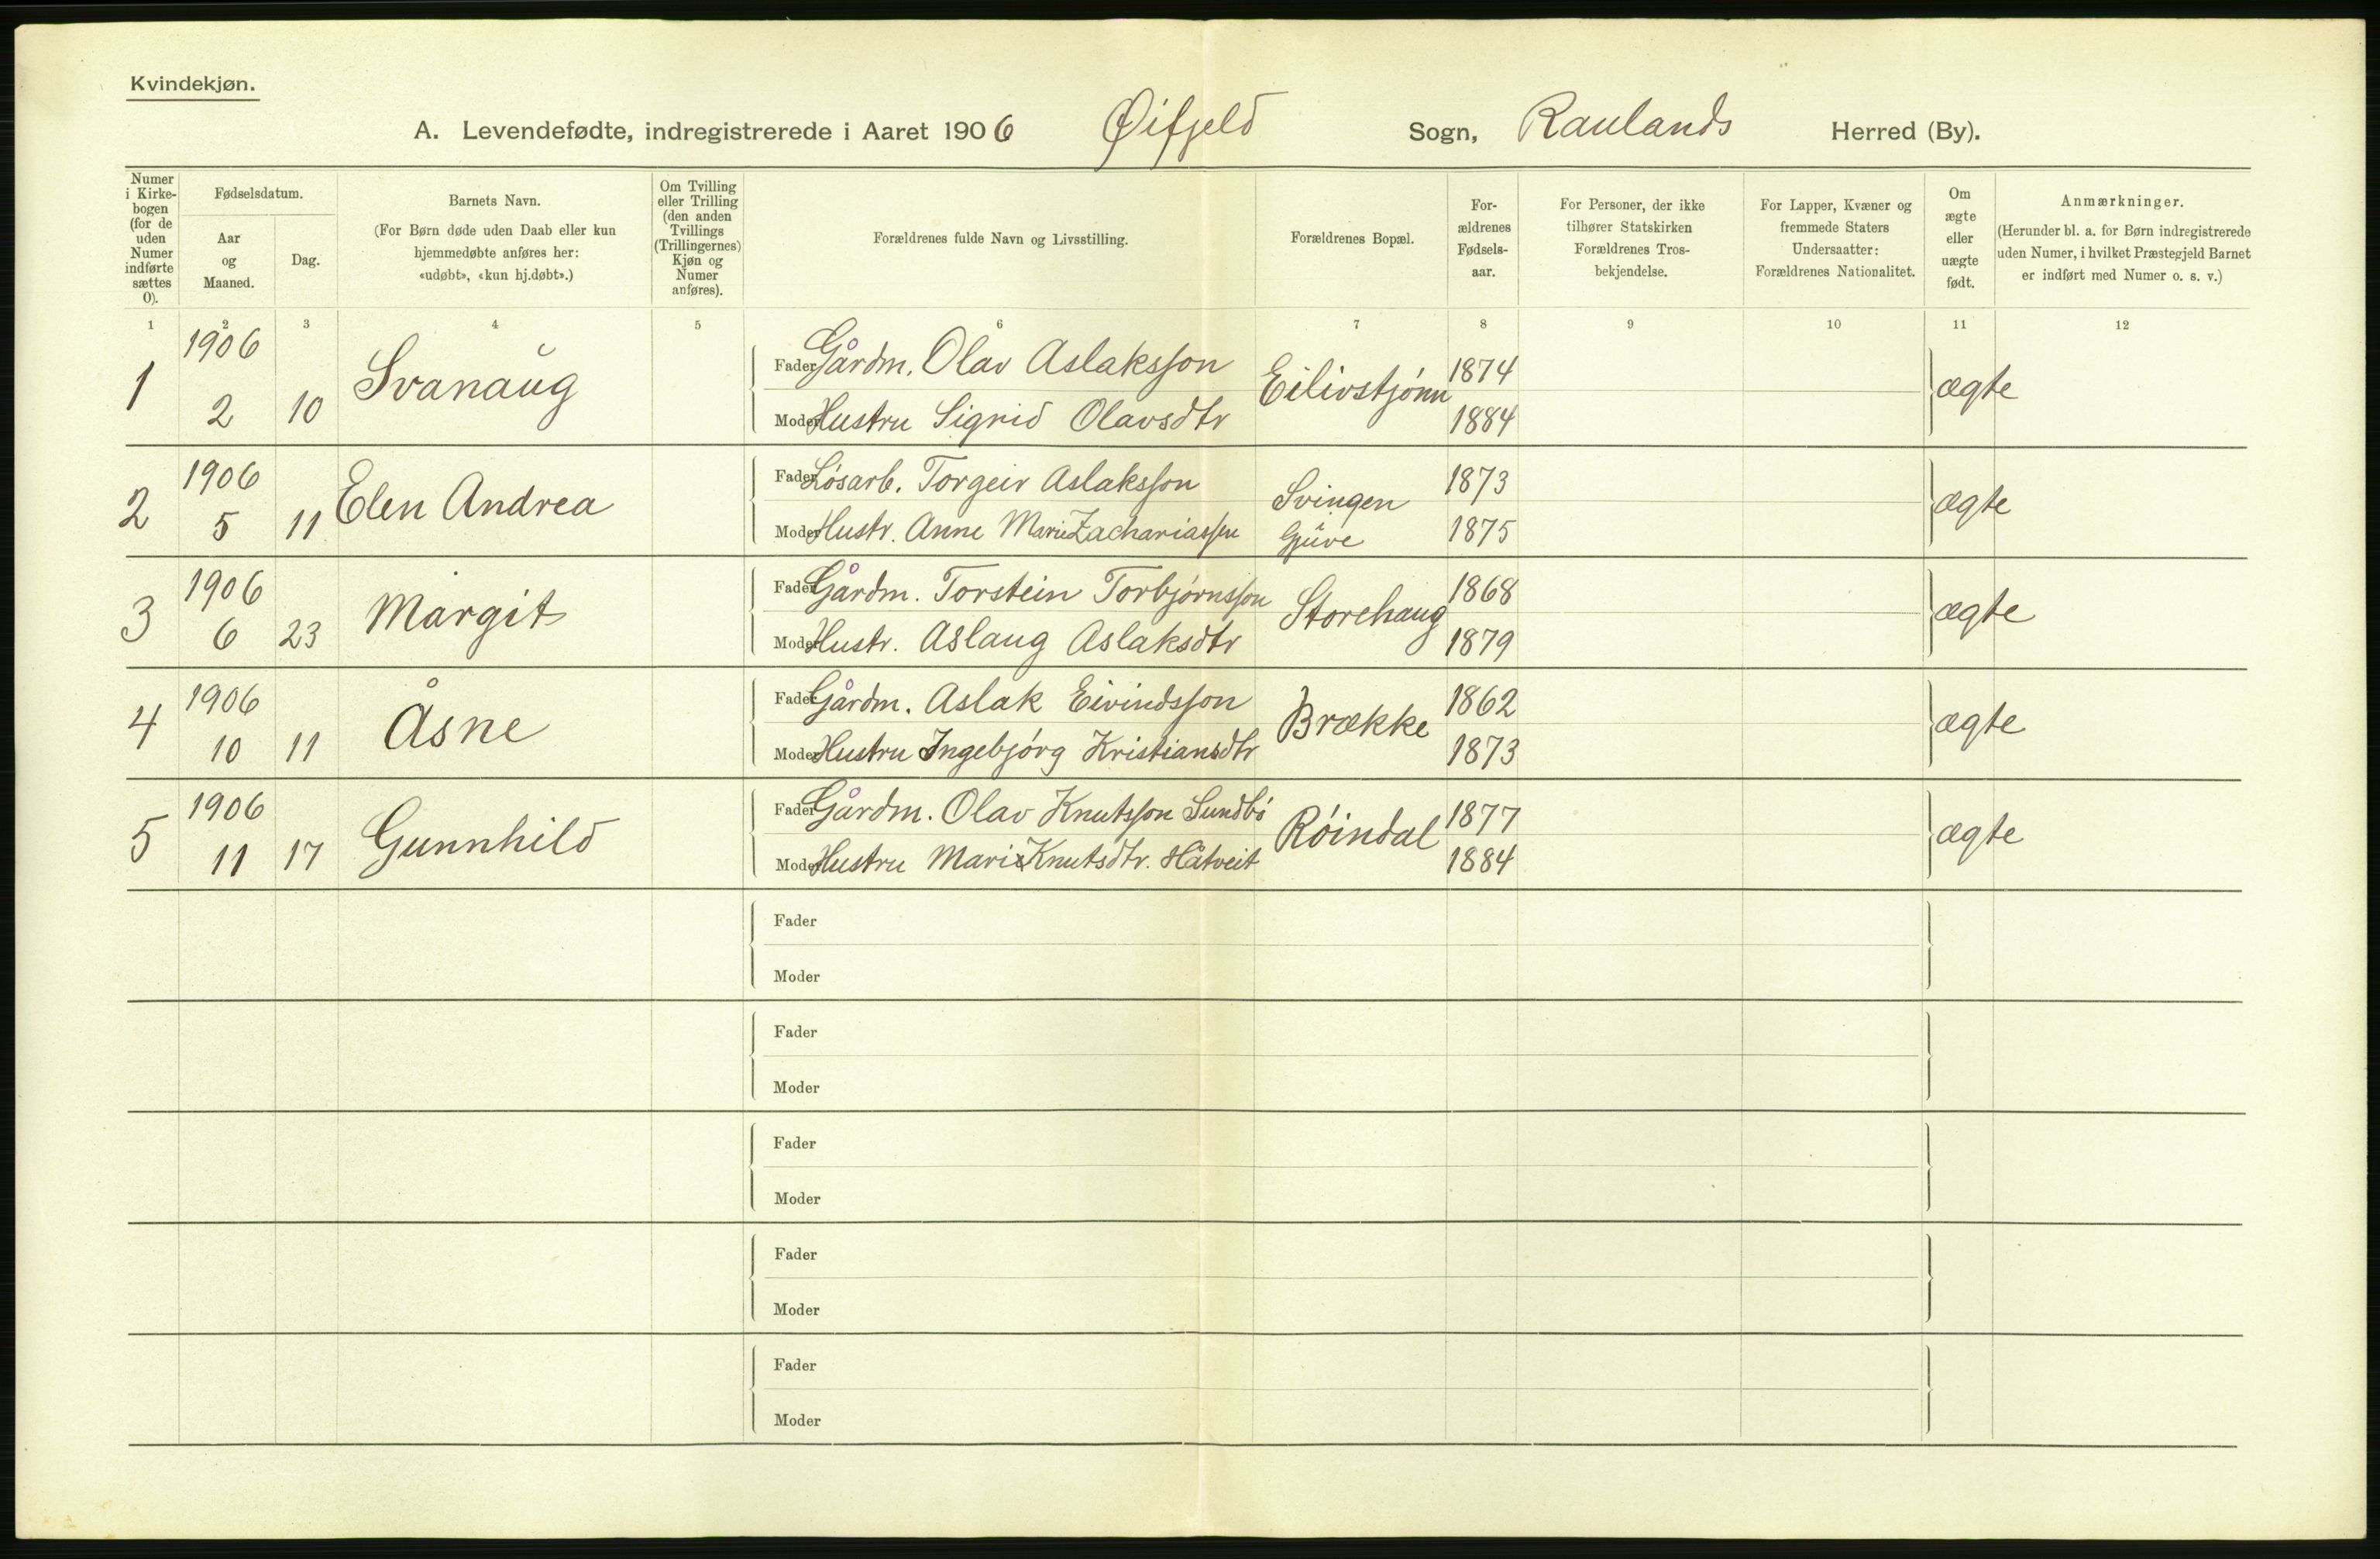 Kvindekjøn.
A. Levendefødte, indregistrerede i Aaret 1906 Øifjeld Sogn, Raulands Herred (By).
Numer i Kirke-bogen (for de uden Numer indførte sættes 0).
Fødselsdatum.
Aar og Maaned.
Dag.
Barnets Navn.
(For Børn døde uden Daab eller kun
hjemmedøbte anføres her:
«udøbt», «kun hj.døbt».)
Om Tvilling
eller Trilling
(den anden
Tvillings
(Trillingernes)
Kjøn og
Numer
anføres).
Forældrenes fulde Navn og Livsstilling.
Forældrenes Bopæl.
For-
ældrenes
Fødsels-
aar.
For Personer, der ikke
tilhører Statskirken
Forældrenes Tros-
bekjendelse.
For Lapper, Kvæner og
fremmede Staters
Undersaatter:
Forældrenes Nationalitet.
Om
ægte
eller
uægte
født.
Anmærkninger.
(Herunder bl. a. for Børn indregistrerede
uden Numer, i hvilket Præstegjeld Barnet
er indført med Numer o. s. v.)
1 2 3 4 5 6 7 8 9 10 11 12
1 1906 2 10 Svanaug
Fader Gårdm. Olav Aslaksson Eilivstjónn 1874 ægte
Moder Hustru Sigrid Olavsdtr 1884
2 1906 5 11 Elen Andrea
Fader Lósarb. Torgeir Aslaksson Svingen 1873 ægte
Moder Hustr. Anne Marie Zachariassen Gjuve 1875
3 1906 6 23 Margit
Fader Gårdm. Torstein Torbjórnsson Storehaug 1868 ægte
Moder Hustr. Aslaug Aslaksdtr 1879
4 1906 10 11 Åsne
Fader Gårdm. Aslak Eivindsson Brække 1862 ægte
Moder Hustru Ingebjórg Kristiansdtr 1873
5 1906 11 17 Gunnhild
Fader Gårdm. Olav Knutsson Sundbó Róindal 1877 ægte
Moder Hustru Mari Knutsdtr. Håtveit 1884
Fader
Moder
Fader
Moder
Fader
Moder
Fader
Moder
Fader
Moder